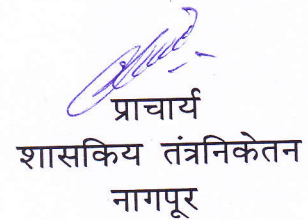 प्राचार्य
शासकिय तंत्रनिकेतन
नागपूर